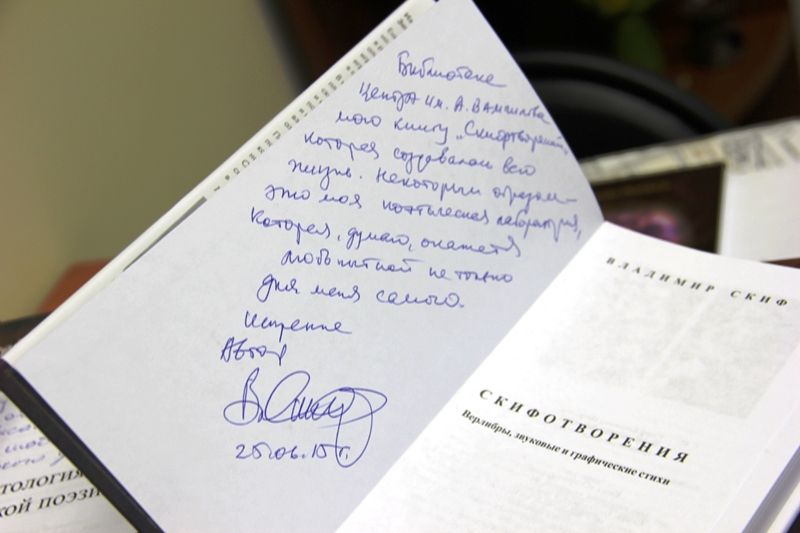 Библиотеке
Центра им. А. Вампилова
мою книгу „Скифотворений,
которая создавалась всю
жизнь. Некоторым образом –
это моя поэтическая лаборатория,
которая, думаю, окажется
любопытной не только
для меня самого.
Искренне
Автор
25.06.15 г.
ВЛАДИМИР СКИФ
СКИФОТВОРЕНИЯ
Верлибры, звуковые и графические стихи
тология
кой поэзи